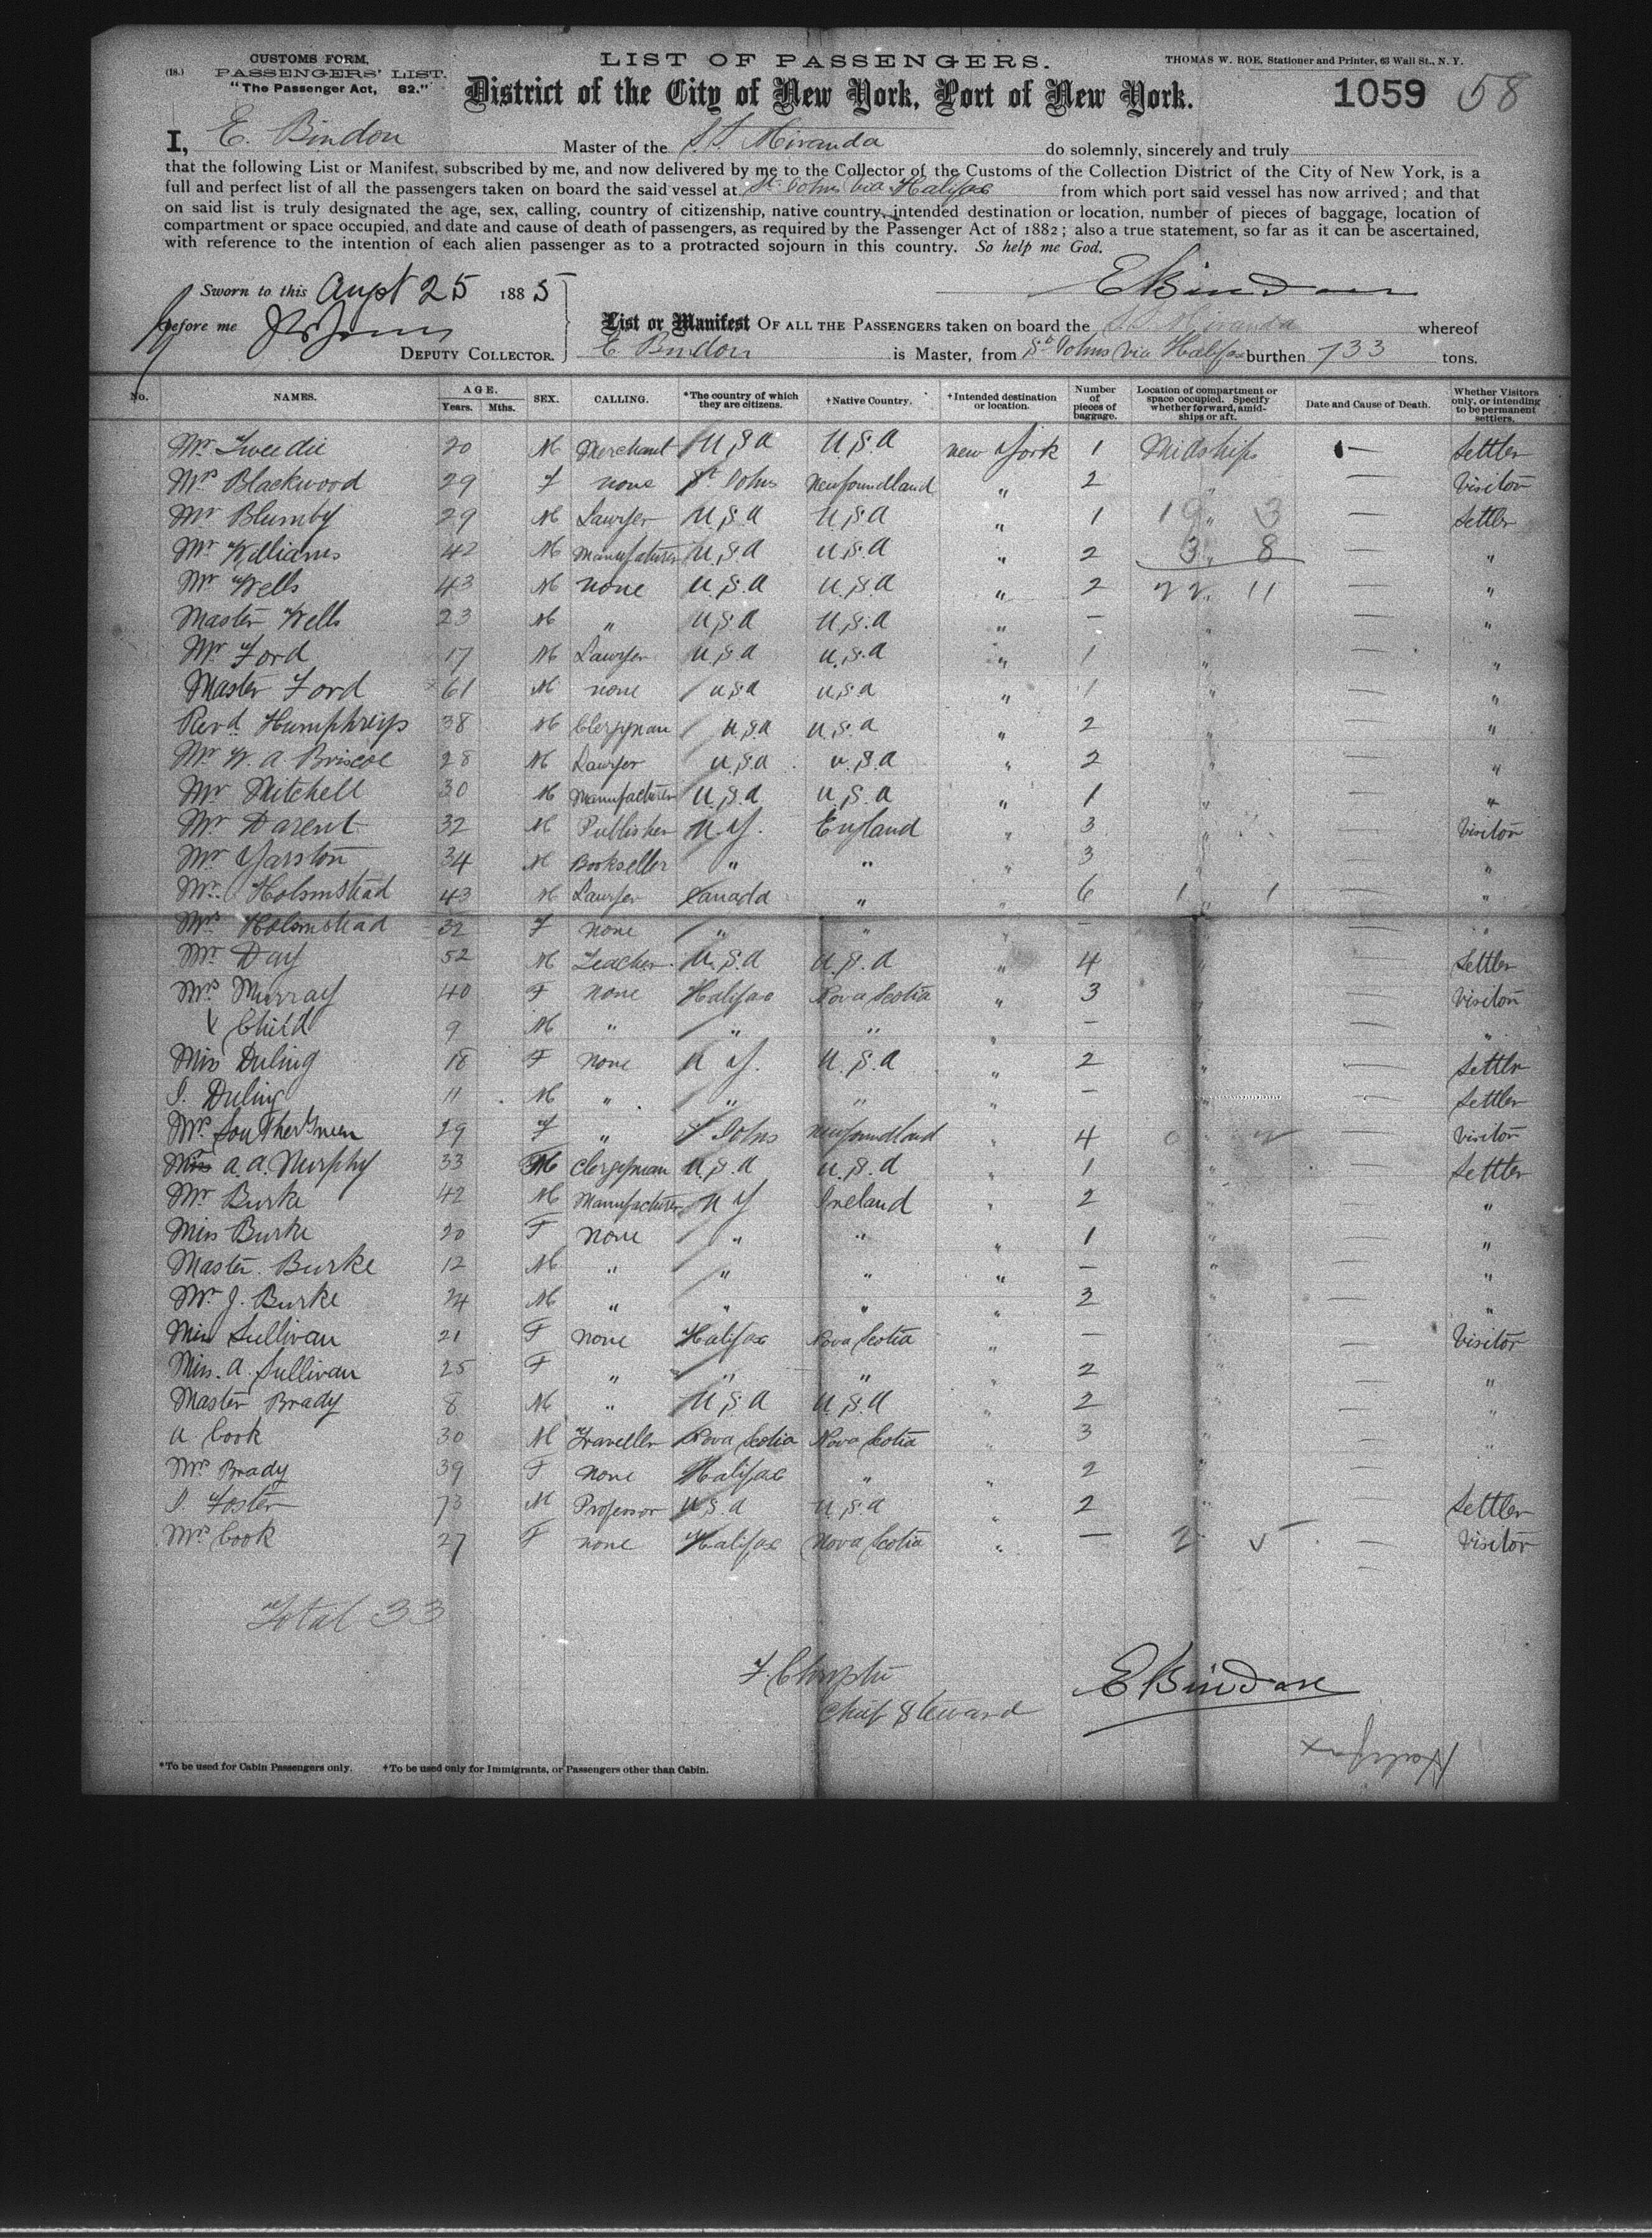 CUSTOMS FORM.
(18.) PASSENGERS' LIST.
"The Passenger Act, 82."
LIST OF PASSENGERS.
THOMAS W. ROE, Stationer and Printer, 63 Wall St., N. Y.
District of the City of New York, Port of New York.
1059 58
I, E. Bindon Master of the S.S. Miranda do solemnly, sincerely and truly
that the following List or Manifest, subscribed by me, and now delivered by me to the Collector of the Customs of the Collection District of the City of New York, is a
full and perfect list of all the passengers taken on board the said vessel at St. Johns via Halifax from which port said vessel has now arrived; and that
on said list is truly designated the age, sex, calling, country of citizenship, native country, intended destination or location, number of pieces of baggage, location of
compartment or space occupied, and date and cause of death of passengers, as required by the Passenger Act of 1882; also a true statement, so far as it can be ascertained,
with reference to the intention of each alien passenger as to a protracted sojourn in this country. So help me God.
E Bindon
Sworn to this Augt 25 1885
before me
DEPUTY COLLECTOR.
List or Manifest OF ALL THE PASSENGERS taken on board the S.S. Miranda whereof
E Bindon is Master, from St Johns via Halifax burthen 733 tons.
No. NAMES. AGE. Years. Mths. SEX. CALLING. *The country of which they are citizens. †Native Country. †Intended destination or location. Number of pieces of baggage. Location of compartment or space occupied. Specify whether forward, amidships or aft. Date and Cause of Death. Whether Visitors only, or intending to be permanent settlers.
Mr. Tweedie 20 M Merchant U.S.A U.S.A New York 1 Midships — Settler
Mrs Blackwood 29 F none St Johns Newfoundland " 2 " — Visitor
Mr Blumby 29 M Lawyer U.S.A U.S.A " 1 19 " 3 — Settler
Mr Williams 42 M Manufacturer U.S.A U.S.A " 2 3 " 8 — "
Mr Wells 43 M none U.S.A U.S.A " 2 22 " 11 — "
Master Wells 23 M " U.S.A U.S.A " — " — "
Mr Ford 17 M Lawyer U.S.A U.S.A " 1 " — "
Master Ford 61 M none U.S.A U.S.A " 1 " — "
Revd. Humphreys 38 M Clergyman U.S.A U.S.A " 2 " — "
Mr W. A. Briscoe 28 M Lawyer U.S.A U.S.A " 2 " — "
Mr Mitchell 30 M Manufacturer U.S.A U.S.A " 1 " — "
Mr Darent 32 M Publisher N.Y. England " 3 " — Visitor
Mr Yarston 34 M Bookseller " " 3 " — "
Mr. Holmstead 43 M Lawyer Canada " " 6 1 " 1 — "
Mrs Holmstead 32 F none " " " — " — "
Mr. Day 52 M Teacher U.S.A U.S.A " 4 " — Settler
Mrs Murray 40 F none Halifax Nova Scotia " 3 " — Visitor
Child 9 M " " " " — " — "
Miss Duling 18 F none N Y. U.S.A " 2 " — Settler
Duling 11 M " " " " — " — Settler
Mrs 29 F " St Johns Newfoundland " 4 " — Visitor
A. A. Murphy 33 M Clergyman U.S.A U.S.A " 1 " — Settler
Mr Burke 42 M Manufacturer N Y Ireland " 2 " — "
Miss Burke 20 F none " " " 1 " — "
Master. Burke 12 M " " " " — " — "
Mr. J. Burke 24 M " " " " 2 " — "
Miss Sullivan 21 F none Halifax Nova Scotia " — " — Visitor
Miss. A. Sullivan 25 F " " " " 2 " — "
Master Brady 8 M " U.S.A U.S.A " 2 " — "
A Cook 30 M Traveller Nova Scotia Nova Scotia " 3 " — "
Mrs Brady 39 F none Halifax " " 2 " — "
Foster 73 M Professor U.S.A U.S.A " 2 " — Settler
Mrs Cook 27 F none Halifax Nova Scotia " — 2 — Visitor
Total 33
Chief Steward
E Bindon
Halifax
*To be used for Cabin Passengers only. †To be used only for Immigrants, or Passengers other than Cabin.